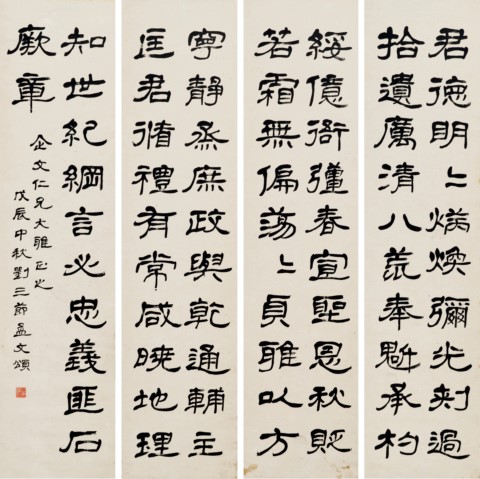 君德明〻炳煥彌光刺過
拾遺厲清八荒奉魁承杓
綏億衙彊春宣聖恩秋貶
若霜無偏蕩〻貞雅以方
寧靜烝庶政與乾通輔主
匡君脩禮有常咸曉地理
知世紀綱言必忠義匪石
厥章
企文仁兄大雅正之
戊辰中秋劉三節孟文頌